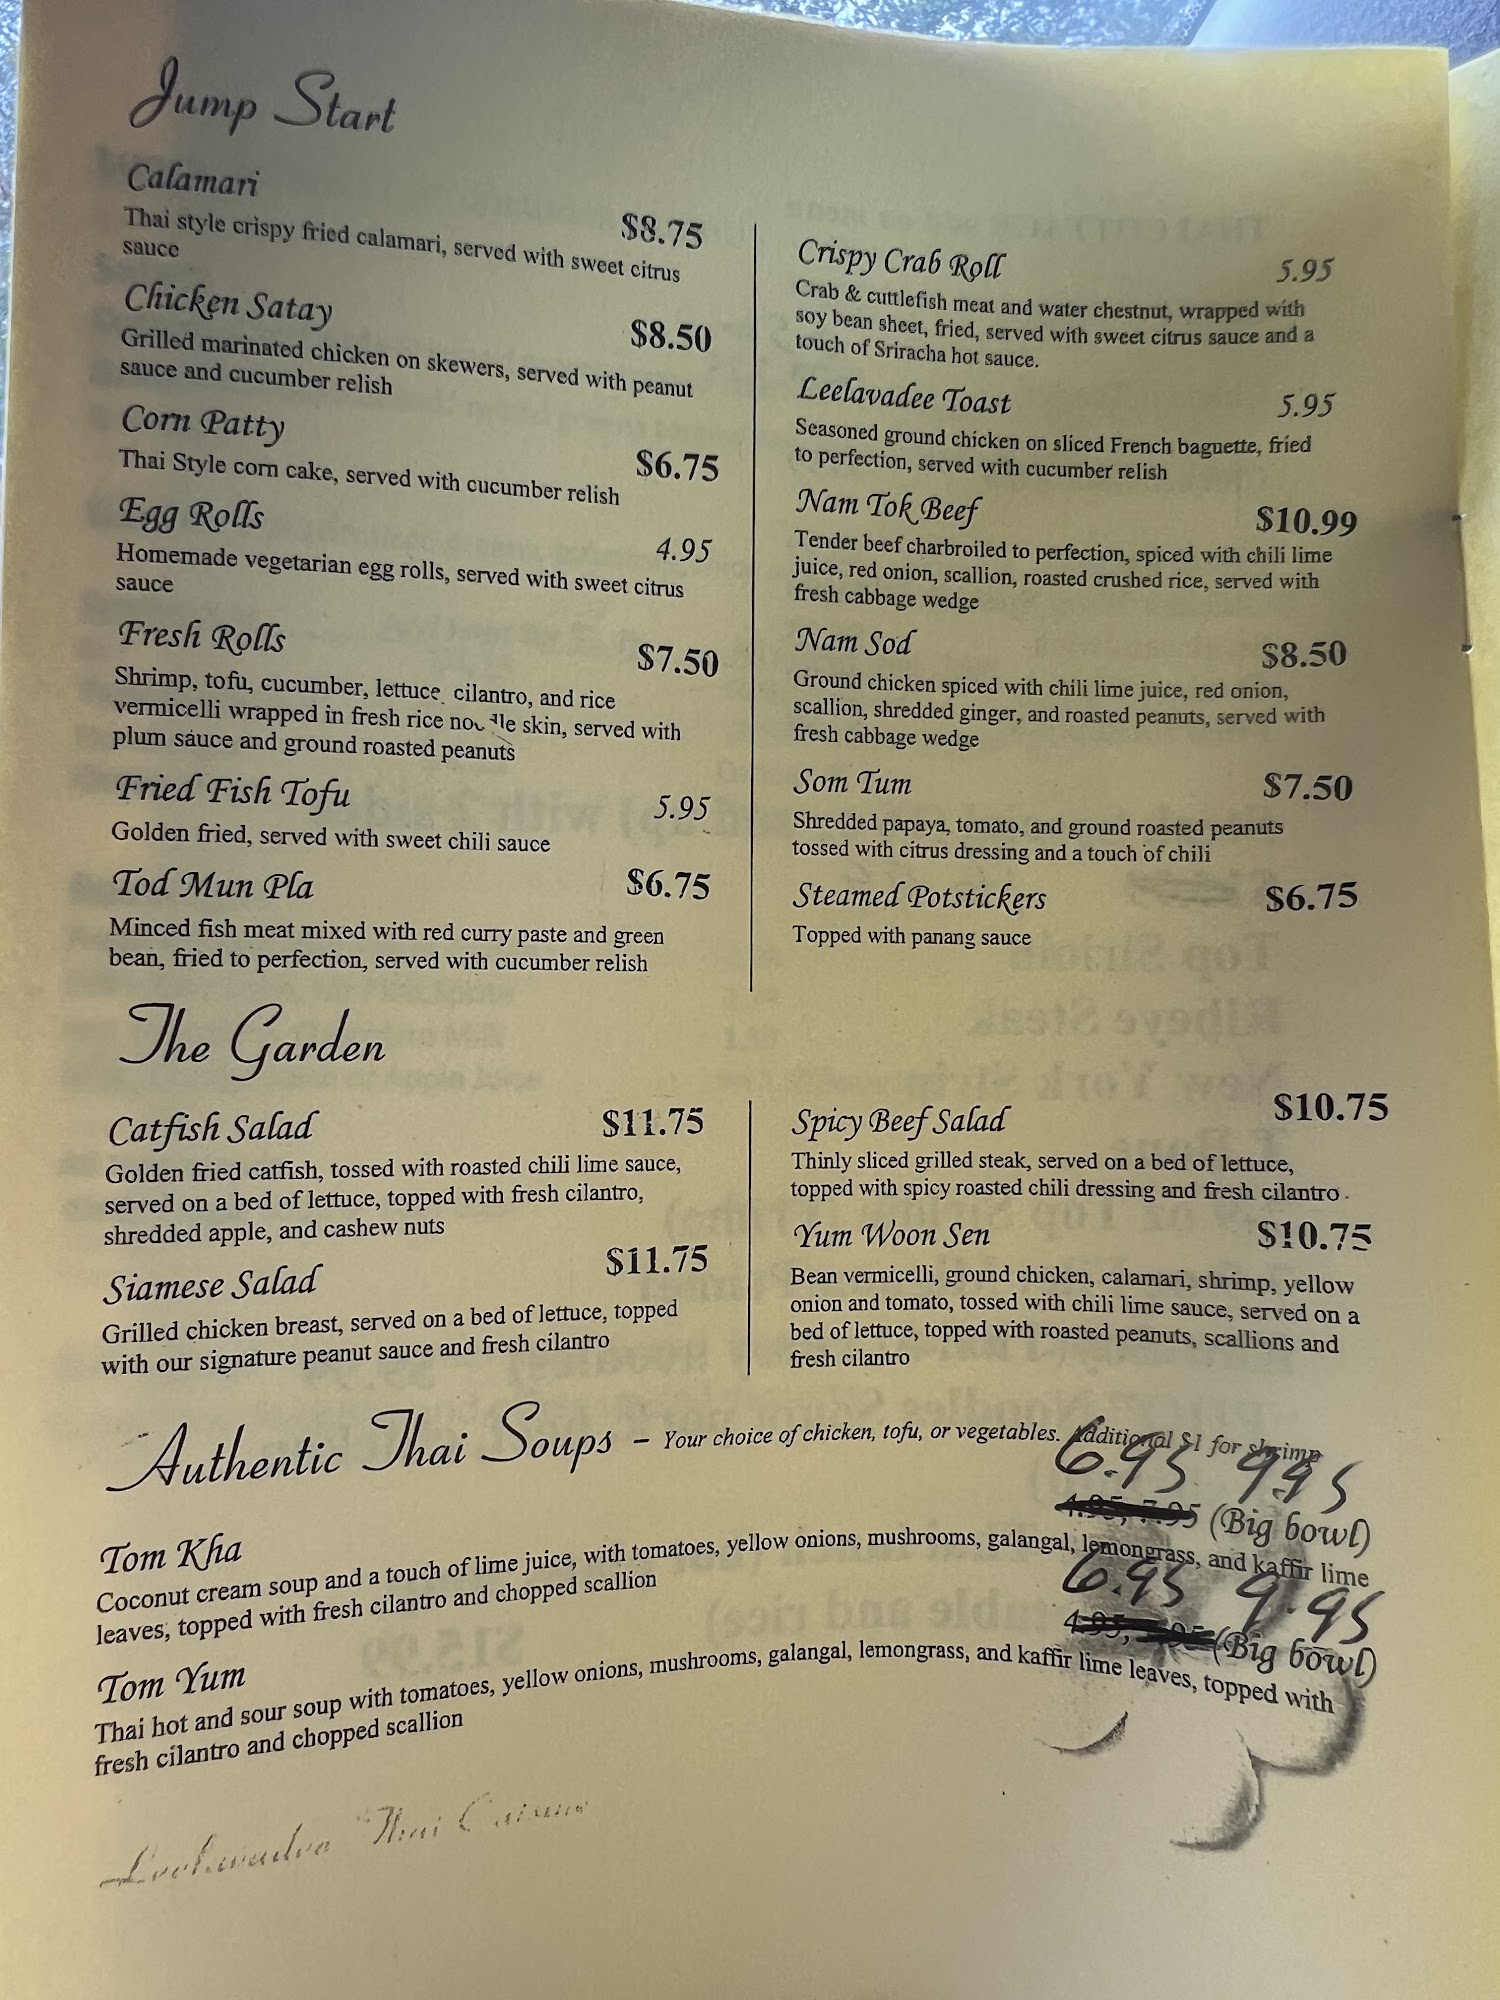 Jump Start
Calamari
$8.75
Thai style crispy fried calamari, served with sweet citrus
sauce
Chicken Satay
$8.50
Grilled marinated chicken on skewers, served with peanut
sauce and cucumber relish
Corn Patty
$6.75
Thai Style corn cake, served with cucumber relish
Egg Rolls
4.95
Homemade vegetarian egg rolls, served with sweet citrus
sauce
Fresh Rolls
$7.50
Shrimp, tofu, cucumber, lettuce, cilantro, and rice
vermicelli wrapped in fresh rice noodle skin, served with
plum sauce and ground roasted peanuts
Fried Fish Tofu
5.95
Golden fried, served with sweet chili sauce
Tod Mun Pla
$6.75
Minced fish meat mixed with red curry paste and green
bean, fried to perfection, served with cucumber relish
Crispy Crab Roll
5.95
Crab & cuttlefish meat and water chestnut, wrapped with
soy bean sheet, fried, served with sweet citrus sauce and a
touch of Sriracha hot sauce.
Leelavadee Toast
5.95
Seasoned ground chicken on sliced French baguette, fried
to perfection, served with cucumber relish
Nam Tok Beef
$10.99
Tender beef charbroiled to perfection, spiced with chili lime
juice, red onion, scallion, roasted crushed rice, served with
fresh cabbage wedge
Nam Sod
$8.50
Ground chicken spiced with chili lime juice, red onion,
scallion, shredded ginger, and roasted peanuts, served with
fresh cabbage wedge
Som Tum
$7.50
Shredded papaya, tomato, and ground roasted peanuts
tossed with citrus dressing and a touch of chili
Steamed Potstickers
$6.75
Topped with panang sauce
The Garden
Catfish Salad
$11.75
Golden fried catfish, tossed with roasted chili lime sauce,
served on a bed of lettuce, topped with fresh cilantro,
shredded apple, and cashew nuts
Siamese Salad
$11.75
Grilled chicken breast, served on a bed of lettuce, topped
with our signature peanut sauce and fresh cilantro
Spicy Beef Salad
$10.75
Thinly sliced grilled steak, served on a bed of lettuce,
topped with spicy roasted chili dressing and fresh cilantro.
Yum Woon Sen
$10.75
Bean vermicelli, ground chicken, calamari, shrimp, yellow
onion and tomato, tossed with chili lime sauce, served on a
bed of lettuce, topped with roasted peanuts, scallions and
fresh cilantro
Authentic Thai Soups – Your choice of chicken, tofu, or vegetables. Additional $1 for shrimp
6.95 9.95
Tom Kha
4.95, 7.95 (Big bowl)
Coconut cream soup and a touch of lime juice, with tomatoes, yellow onions, mushrooms, galangal, lemongrass, and kaffir lime
leaves, topped with fresh cilantro and chopped scallion
6.95 9.95
Tom Yum
4.95, (Big bowl)
Thai hot and sour soup with tomatoes, yellow onions, mushrooms, galangal, lemongrass, and kaffir lime leaves, topped with
fresh cilantro and chopped scallion
Thai Cuisine